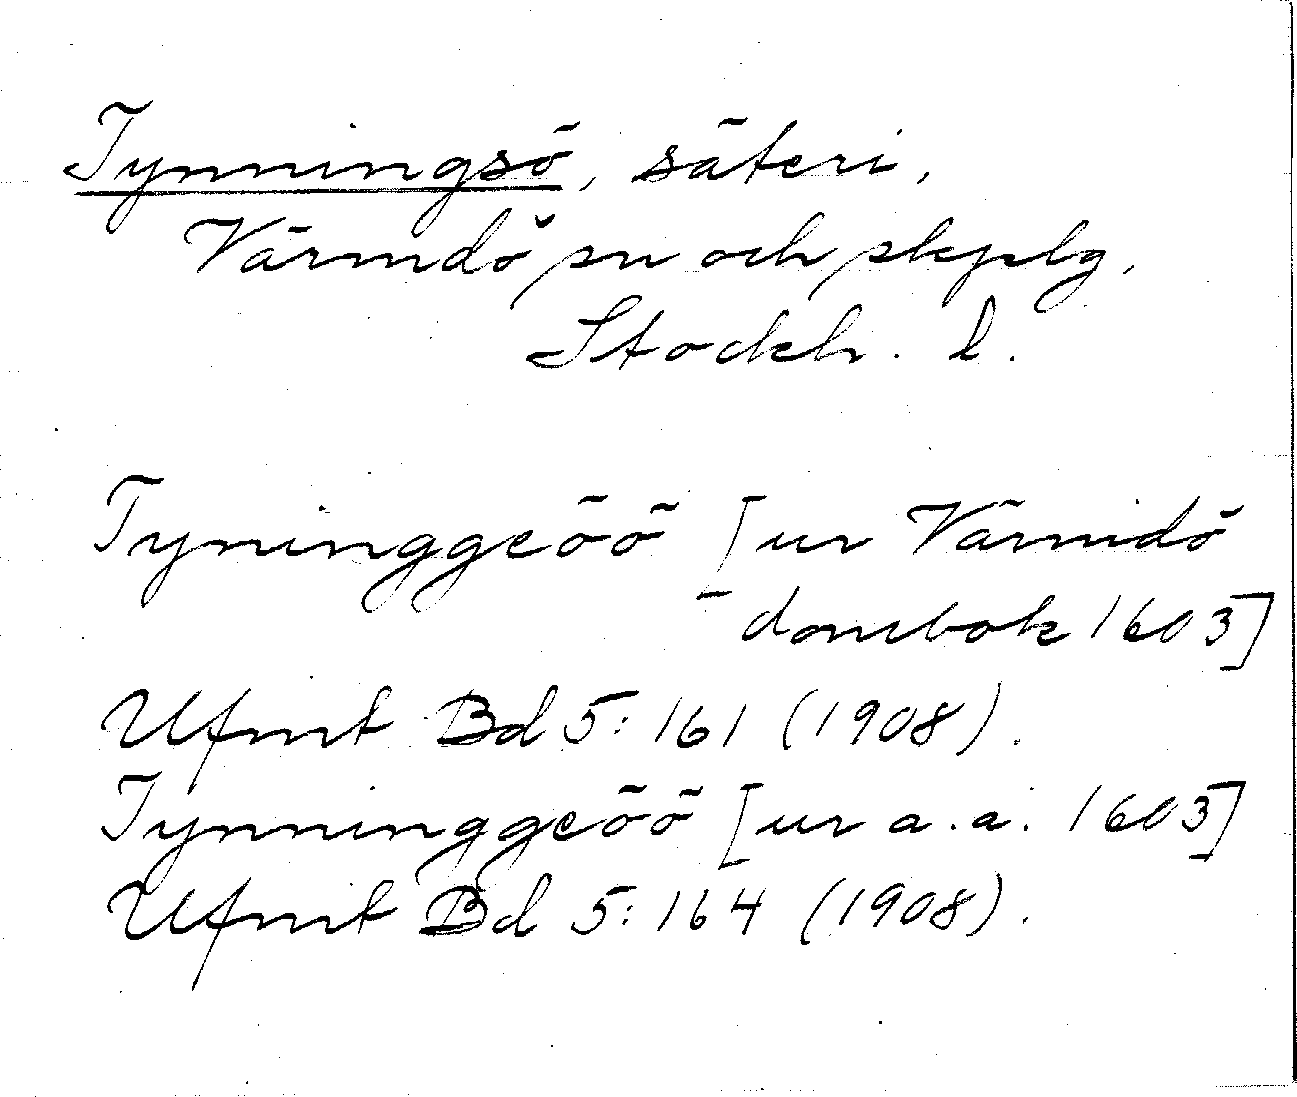 Tynningsö, säteri,
Värmdö sn och skplg,
Stockh. l.
Tyninggeöö [ur Värmdö
dombok 1603]
Ufmt Bd 5: 161 (1908).
Tynninggeöö [ur a.a. 1603]
Ufmt Bd 5: 164 (1908).